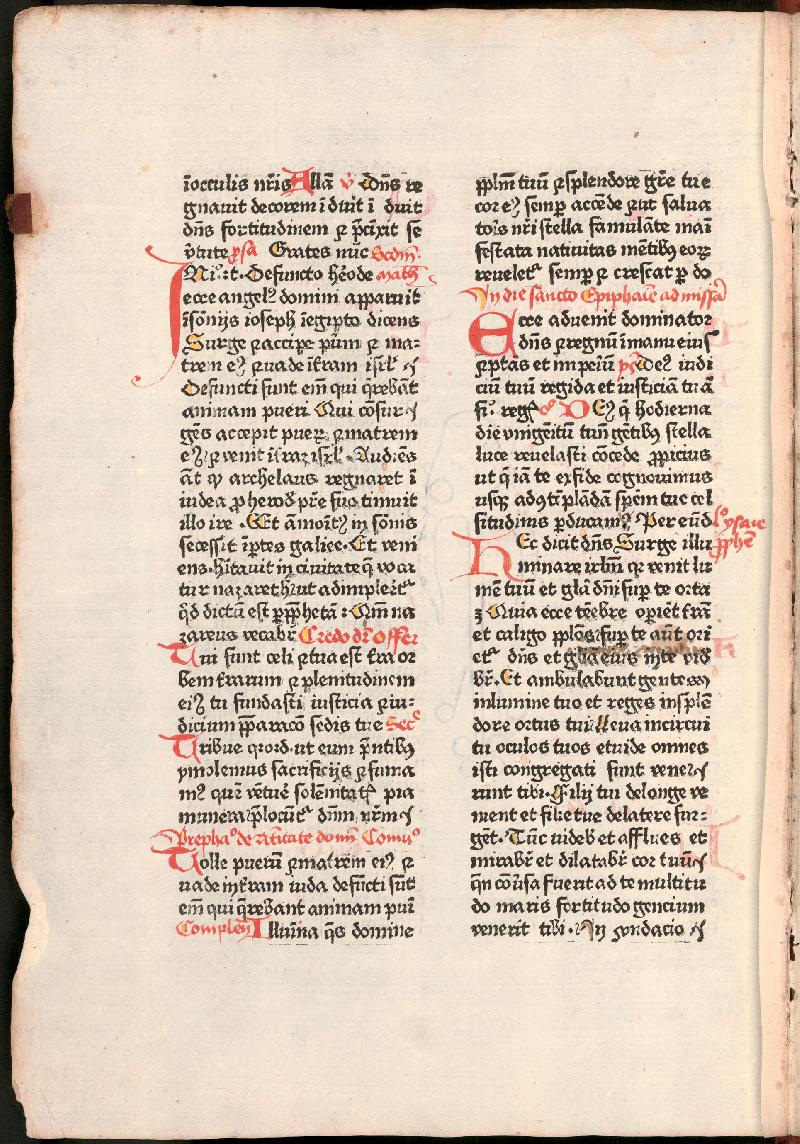 ïocculis nr̄is Allā v̄ Dn̄s re
gnauit decorem īduit ī duit
dn̄s fortitudinem ⁊ p̄cīxit se
v̄tute p̄sa Grates nūc Scdm̄
IN i⁹.t. Defuncto hēode math
ecce angel⁹ domini apparuit
īsōnijs ioseph īegipto dicens
Surge ⁊accipe puȝm ⁊ ma=
trem eiꝰ ⁊uade īt̄ram isrl̄
Defuncti sunt em̄ qui q̄rebāt
animam pueri Qui cōsur
gēs accepit pueꝝ ⁊matrem
eiꝰ ⁊venit īt̄raȝ isrl̄ Audiēs
āt ꝙ archelaus regnaret ī
iudea ꝓ herod̄ pr̄e suo timuit
illo ire. Et āmoītꝰ in sōnis
secessit īptes galiee. Et veni
ens. hītauit in ciuitate q̄ vocat
tur nazareth ut adimpleret̄
q̄d dictū est p ꝓphetā : Qm̄ na
zareus vocabr̄ Credo dr̄ Offer
Tui sunt celi ⁊tua est t̄ra or
bem t̄rarum ⁊ plenitudinem
eiꝰ tu fundasti iusticia ⁊iu=
dicium p̄paracō sedis tue Sec̄
Tribue qꝰ ord. ut eum p̄ntibꝰ
ymolemus sacrificijs ⁊suma
mꝰ quē vētue solēmtatꝭ pia
munera p̄locunt̄ dn̄m nr̄m
Prepha⁰ de natītate dom̄ Comu⁰
Tolle pueȝ ⁊matrem eiꝰ ⁊
uade int̄ram iuda defūcti sūt
em̄ qui q̄rebant animam pu̅i
Complen̄ Illumīa q̄s domine
ꝑplm̄ tuū ⁊splendore gr̄e tue
cor eꝰ semp accēde ⁊ut salua
toīs nr̄i stella famulāte maī
festata nativitas mētibꝰ eoꝝ
reuelet̄ semp ⁊ crescat p do
In die sancto Epiphaīe ad missā
Ecce aduenit dominator
dn̄s ⁊regnū īmanu eiuſ
⁊ptās et imperiū ps̄ Deꝰ iudi
ciū tuū regi da et iusticiā tuā
fi. reg̃ co D Eꝰ q̄ hodierna
die vnigeītū tuū gētibꝰ stella
luce reuelasti cōcede ꝓpicius
ut q̄ iā te ex fide cognouimus
usqꝫ ad ꝯtēplādā spēm tue cel
situdinis p̄ducamꝰ Per eūd̄ l⁰ ysaie
HEc dicit dn̄s Surge illu ꝓphē
minare irlm̄ qꝛ venit lu
mē tuū et gl̄a dn̄i sup te orta
ē Quia ecce teēbre opiēt t̄rā
et caligo pplos sup te aūt ori
et̄ dn̄s et glīa eius īnte vid̄
br̄. Et ambulabunt gentes
inlumine tuo et reges insplē
dore ortus tui lleua incircui
tu oculos tuos etuide omnes
isti congregati sunt vener
runt tibi. Filij tui delonge ve
nient et filie tue delatere sur=
gēt. Tūc uideb et afflues et
mirabr̄ et dilatabr̄ cor tuūꝫ
qn̄ cōūsa fuerit ad te multitu
do maris fortitudo gencium
venerit tibi. In undacio